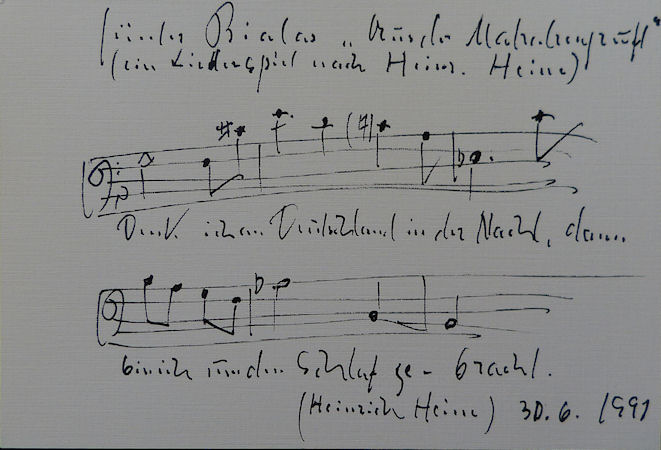 Günter Bialas „Aus der Matratzengruft“
(ein Liederspiel nach Heinr. Heine)
p
Denk ich an Deutschland in der Nacht, dann
bin ich um den Schlaf ge- bracht.
(Heinrich Heine) 30.6.1991